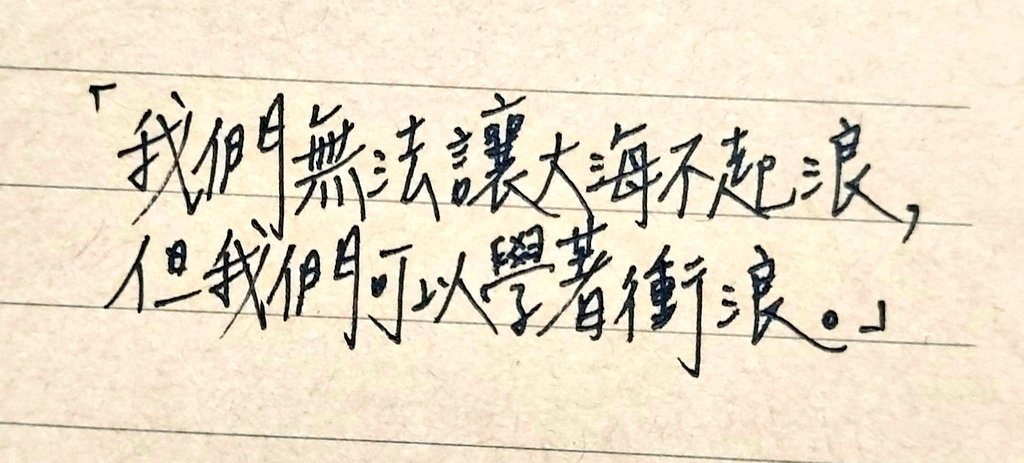 「我們無法讓大海不起浪，
但我們可以學著衝浪。」